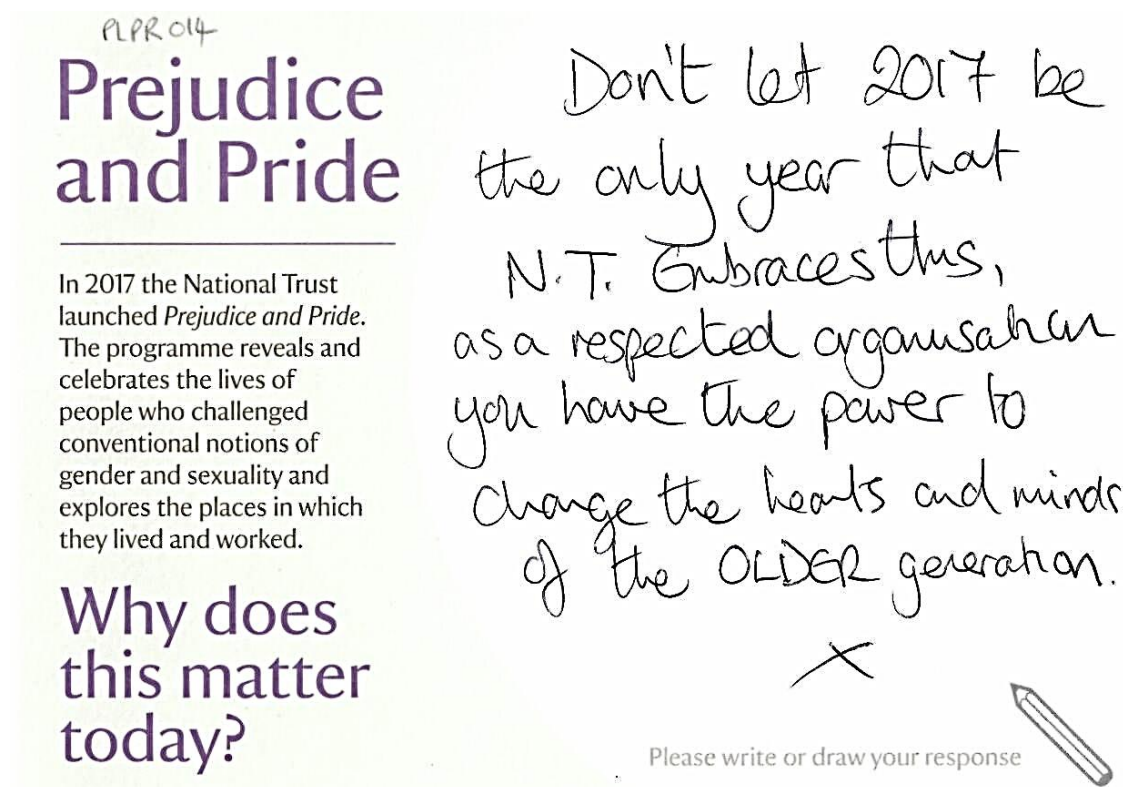 PLPR 014
Prejudice
and Pride
In 2017 the National Trust
launched Prejudice and Pride.
The programme reveals and
celebrates the lives of
people who challenged
conventional notions of
gender and sexuality and
explores the places in which
they lived and worked.
Why does
this matter
today?
Don't let 2017 be
the only year that
N.T. Embraces this,
as a respected organisation
you have the power to
change the hearts and minds
of the OLDER generation.
X
Please write or draw your response